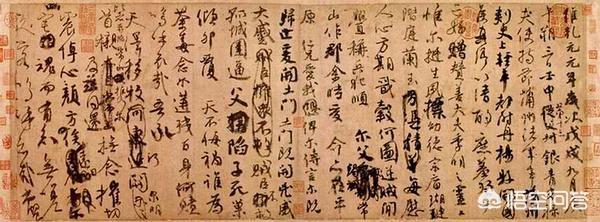 維乾元元年歲次戊戌九月庚
午朔三日壬申銀青光祿
夫使持節蒲州諸軍事蒲州
刺史上輕車都尉丹楊縣開國
侯真卿以清酌庶羞祭于
亡姪贈贊善大夫季明之靈
惟爾挺生夙標幼德宗廟瑚璉
階庭蘭玉每慰
人心方期戩穀何圖逆賊閒
釁稱兵犯順爾父
山作郡余時受命亦在平
原仁兄愛我俾爾傳言爾既
歸止爰開土門土門既開凶威
大蹙賊臣不救
孤城圍逼父陷子死巢
傾卵覆天不悔禍誰為
荼毒念爾遘殘百身何贖
嗚呼哀哉吾承
天澤移牧河關泉明
首櫬及茲同還撫念摧切
震悼心顏方俟
魂而有知無嗟
久客嗚呼哀哉
悟空问答